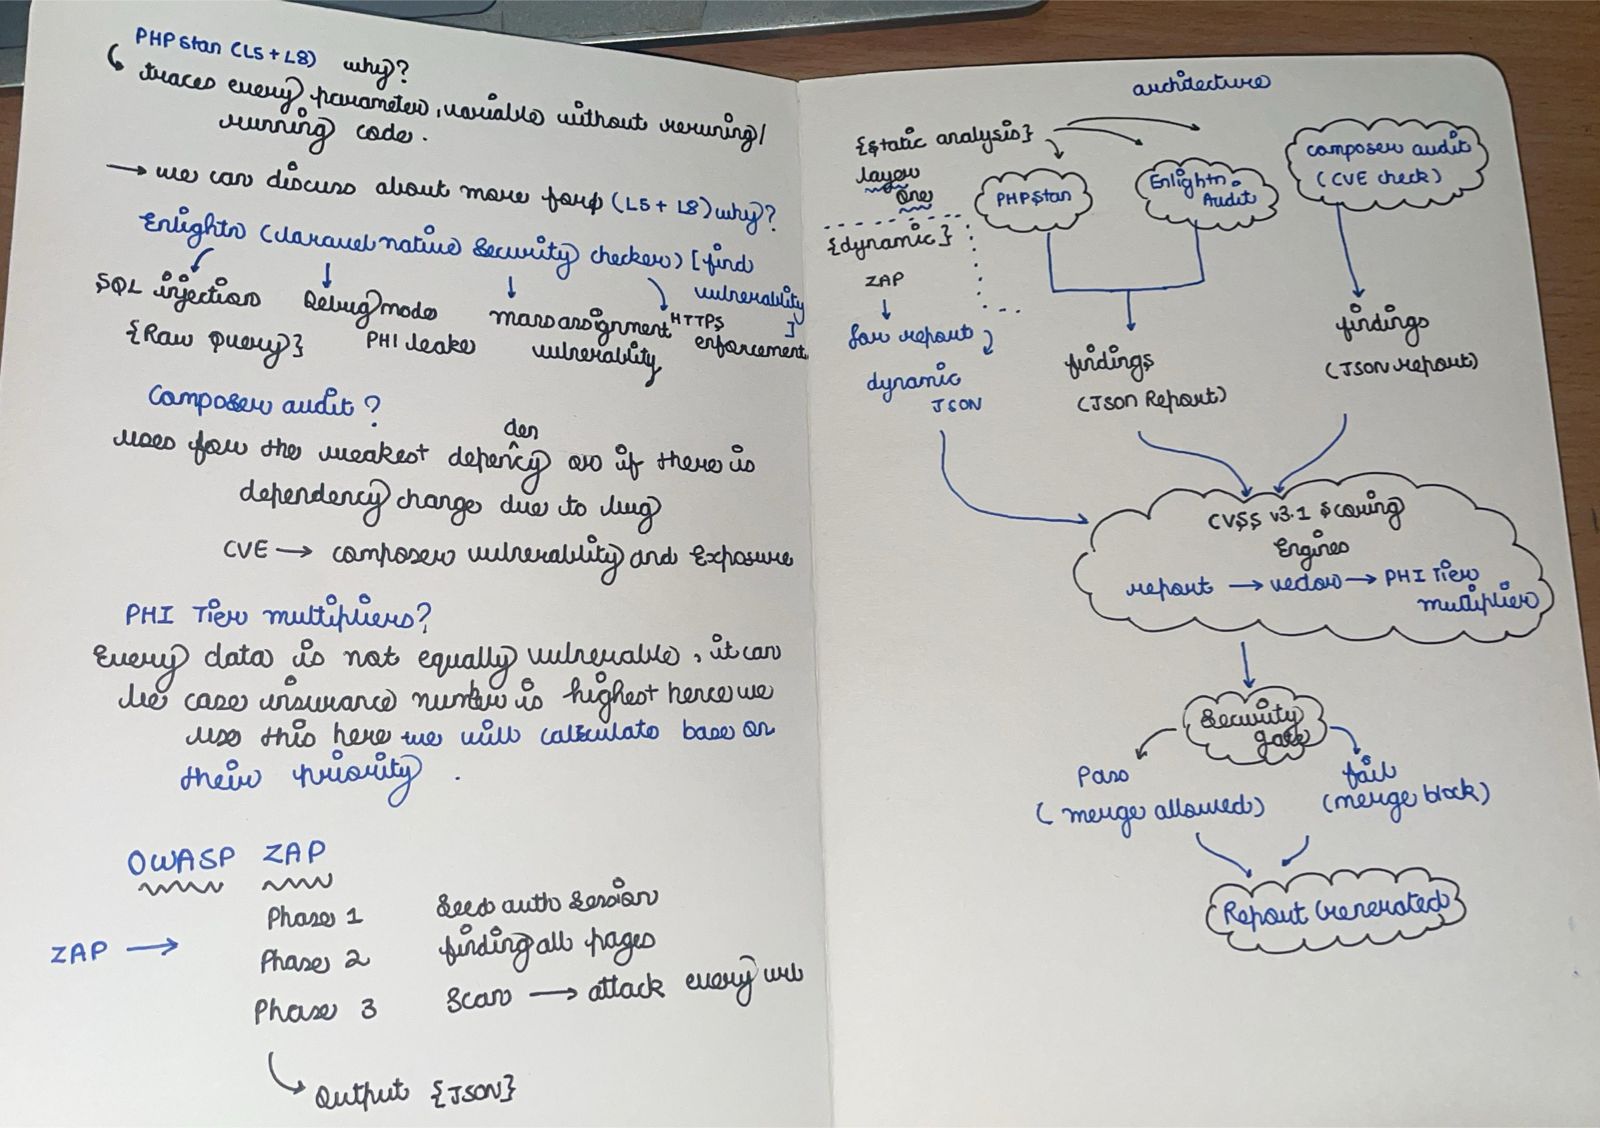 PHPStan (L5 + L8) why?
traces every parameter, variable without reruning/
running code.
→ we can discuss about more for (L5 + L8) why?
Enlightn (laravel native Security checker) [find
vulnerability
]
SQL injection Debug mode mass assignment HTTPS
{Raw Query} PHI leake vulnerability enforcement
Composer audit?
den
uses for the weakest depency or if there is
dependency change due to bug
CVE → composer vulnerability and Exposure
PHI Tier multipliers?
Every data is not equally vulnerable, it can
be case insurance number is highest hence we
use this here we will calculate base on
their priority.
OWASP ZAP
ZAP →
Phase 1 Seed auth session
Phase 2 finding all pages
Phase 3 Scan → attack every url
Output {JSON}
architecture
{static analysis}
layer
One
PHPStan
Enlightn
Audit
composer audit
(CVE check)
{dynamic}
ZAP
for report
dynamic
JSON
findings
(Json Report)
findings
(Json report)
CVSS v3.1 Scoring
Engines
report → vector → PHI Tier
multiplier
Security
gate
Pass
(merge allowed)
fail
(merge block)
Report Generated